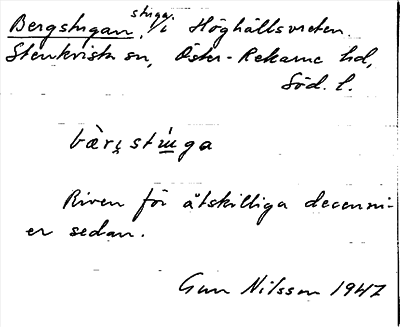 Bergstugan, stuga, i Höghällsvreten.
Stenkvista sn, Öster-Rekarne hd,
Söd. l.
bæ̀rι̣ stú̱ga
Riven för åtskilliga decenni-
er sedan.
Gun Nilsson 1947